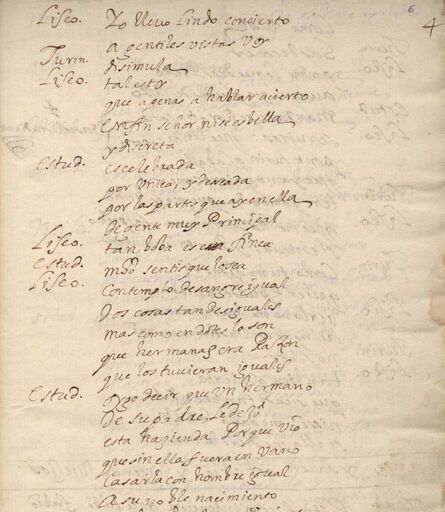 6
4
Liseo. Yo llevo lindo concierto
a gentiles vistas voy
Turin. disimula
Liseo. tal estoy
que apenas a hablar acierto
En fin señor nise es bella
y discreta
estud. es celebrada
por unica, y deseada
por las partes que ay en ella
de gente muy Principal
Liseo. tan boba es esa finea
estud. mucho sentis que lo sea
Liseo. Contemplo de sangre igual
Dos cosas tan desiguales
mas como en dote lo son
que hermanas era Razon
que los tuvieran iguales
Estud. oygo decir que un hermano
De su padre, le dexó
esta hazienda Porque vio
que sin ella fuera en vano
Casarla con hombre igual
A su noble nacimiento